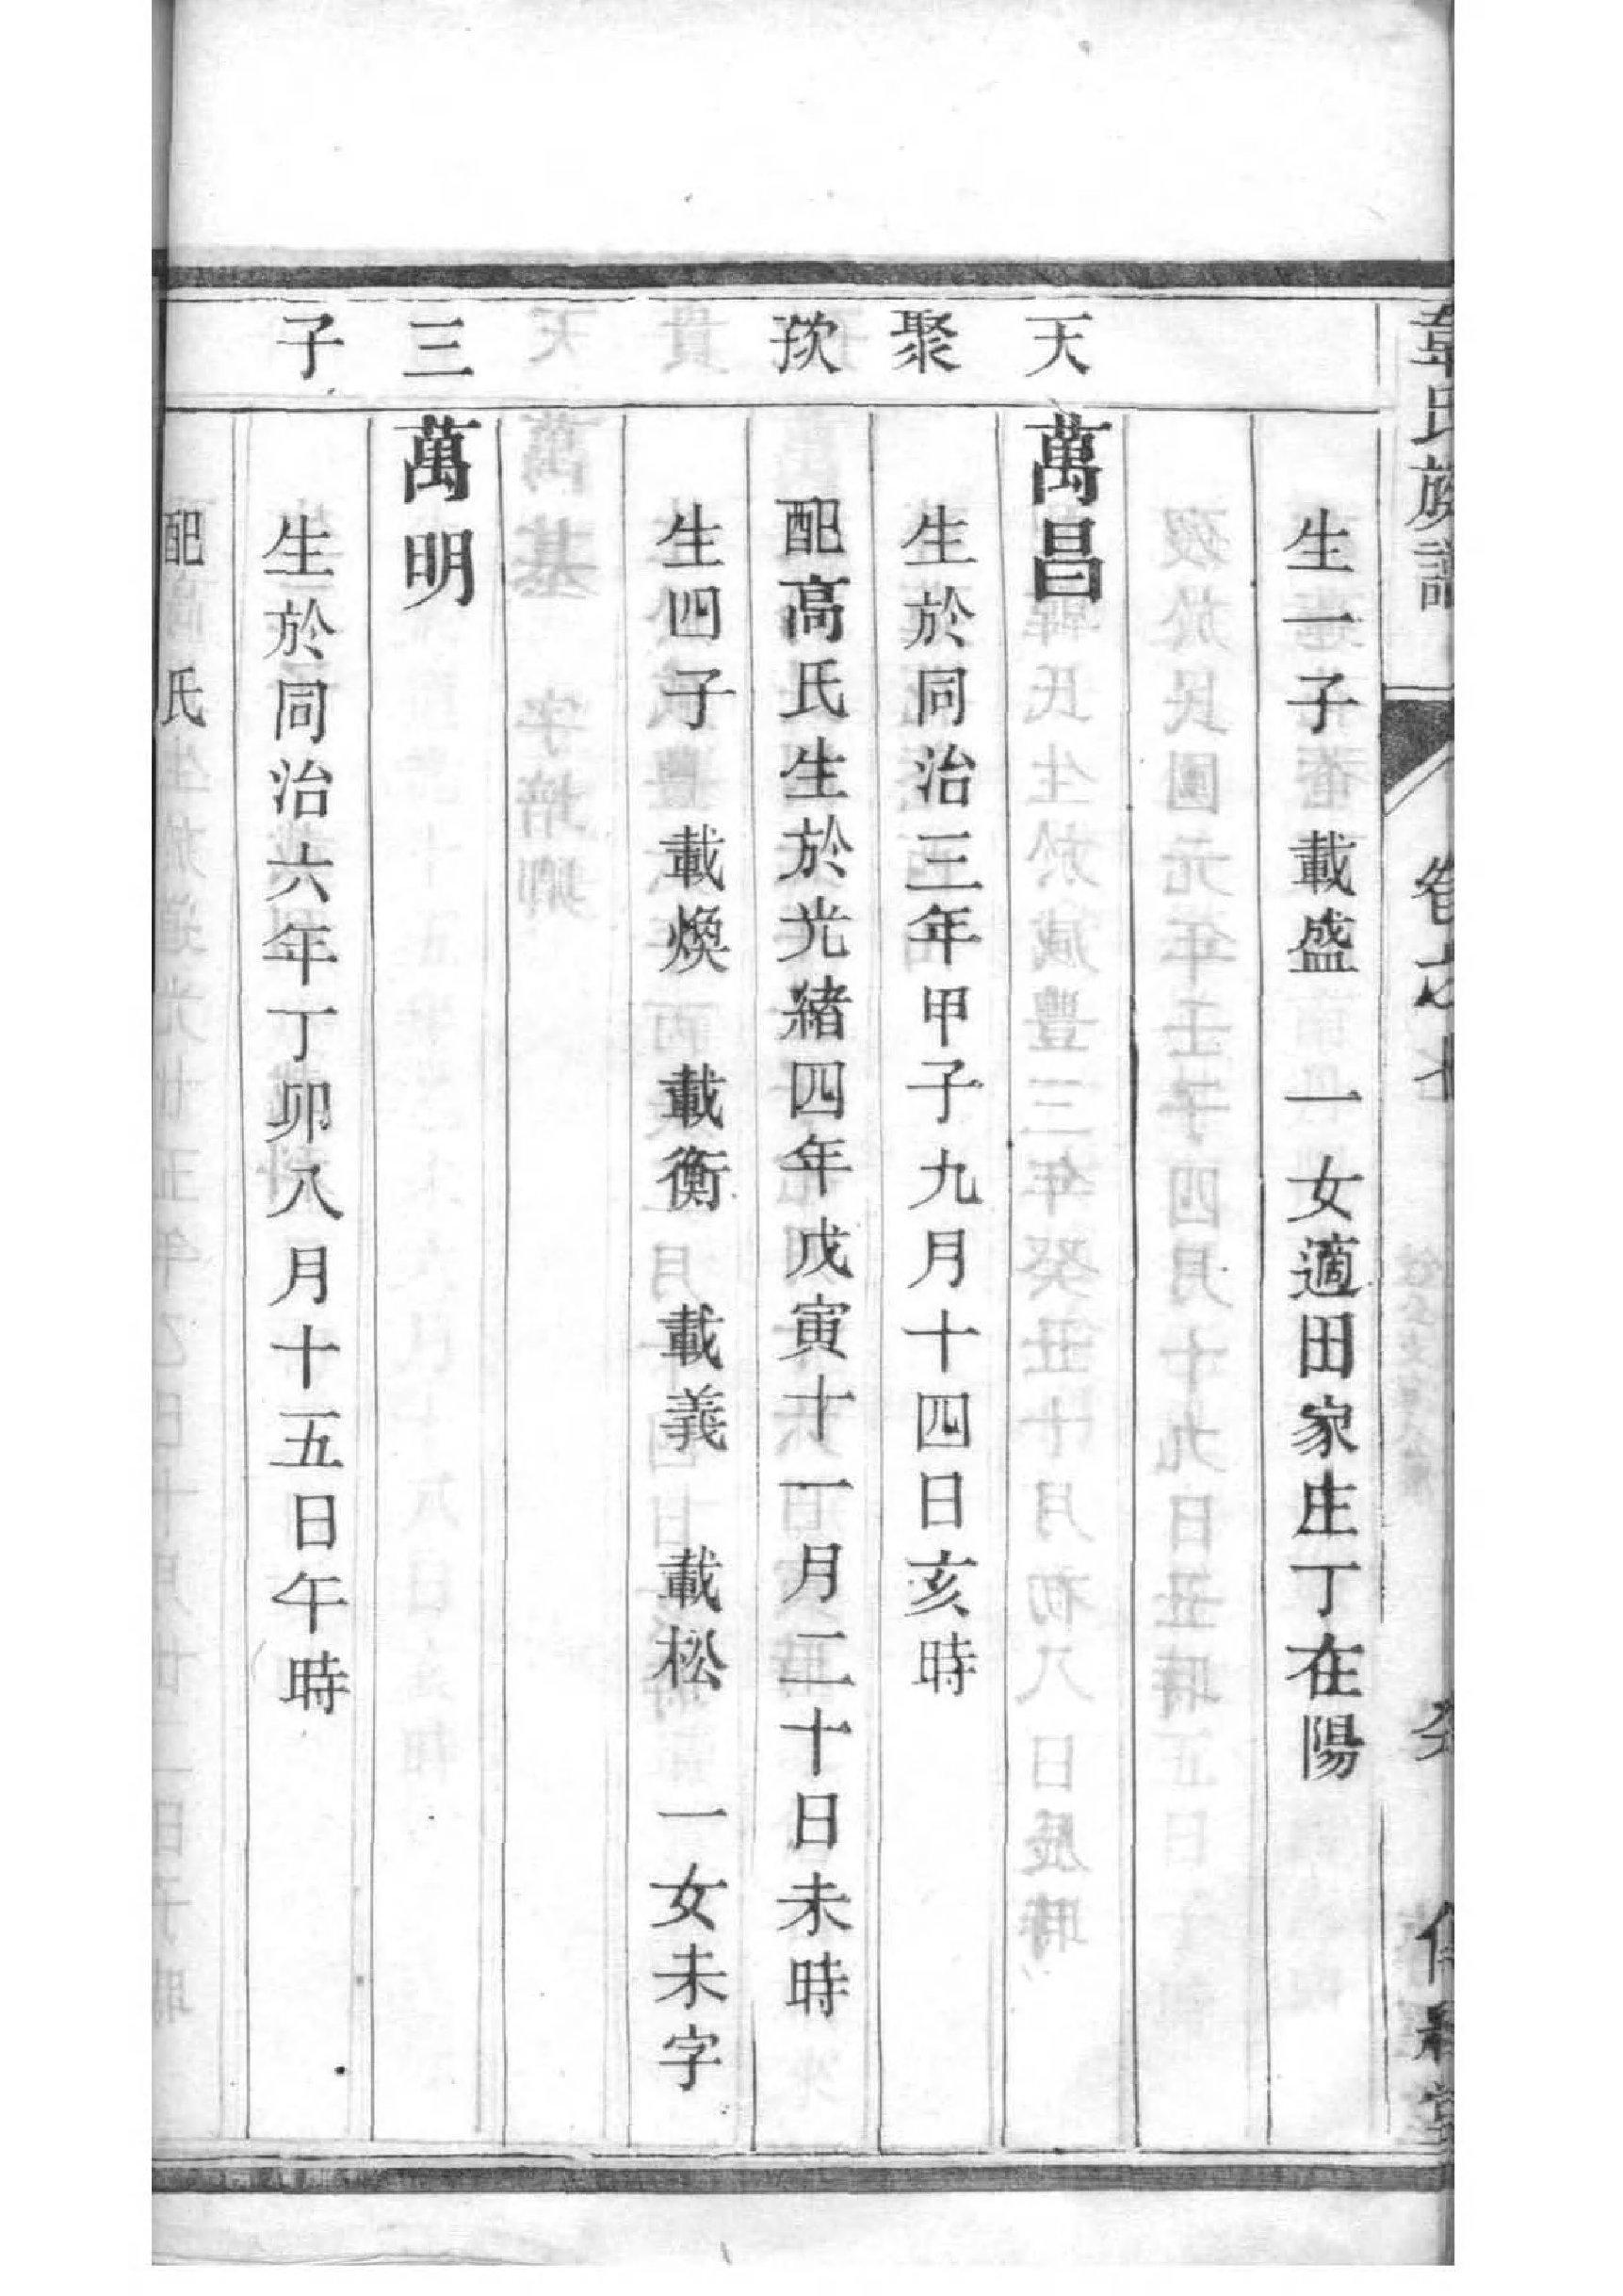 生一子 載盛 一女適田家庄丁在陽
天
萬昌
聚
生於同治三年甲子九月十四日亥時
配高氏生於光緒四年戊寅十一月二十日未時
生四子 載煥 載衡 載義 載松 一女未字
三
萬明
子
生於同治六年丁卯八月十五日午時
配 氏